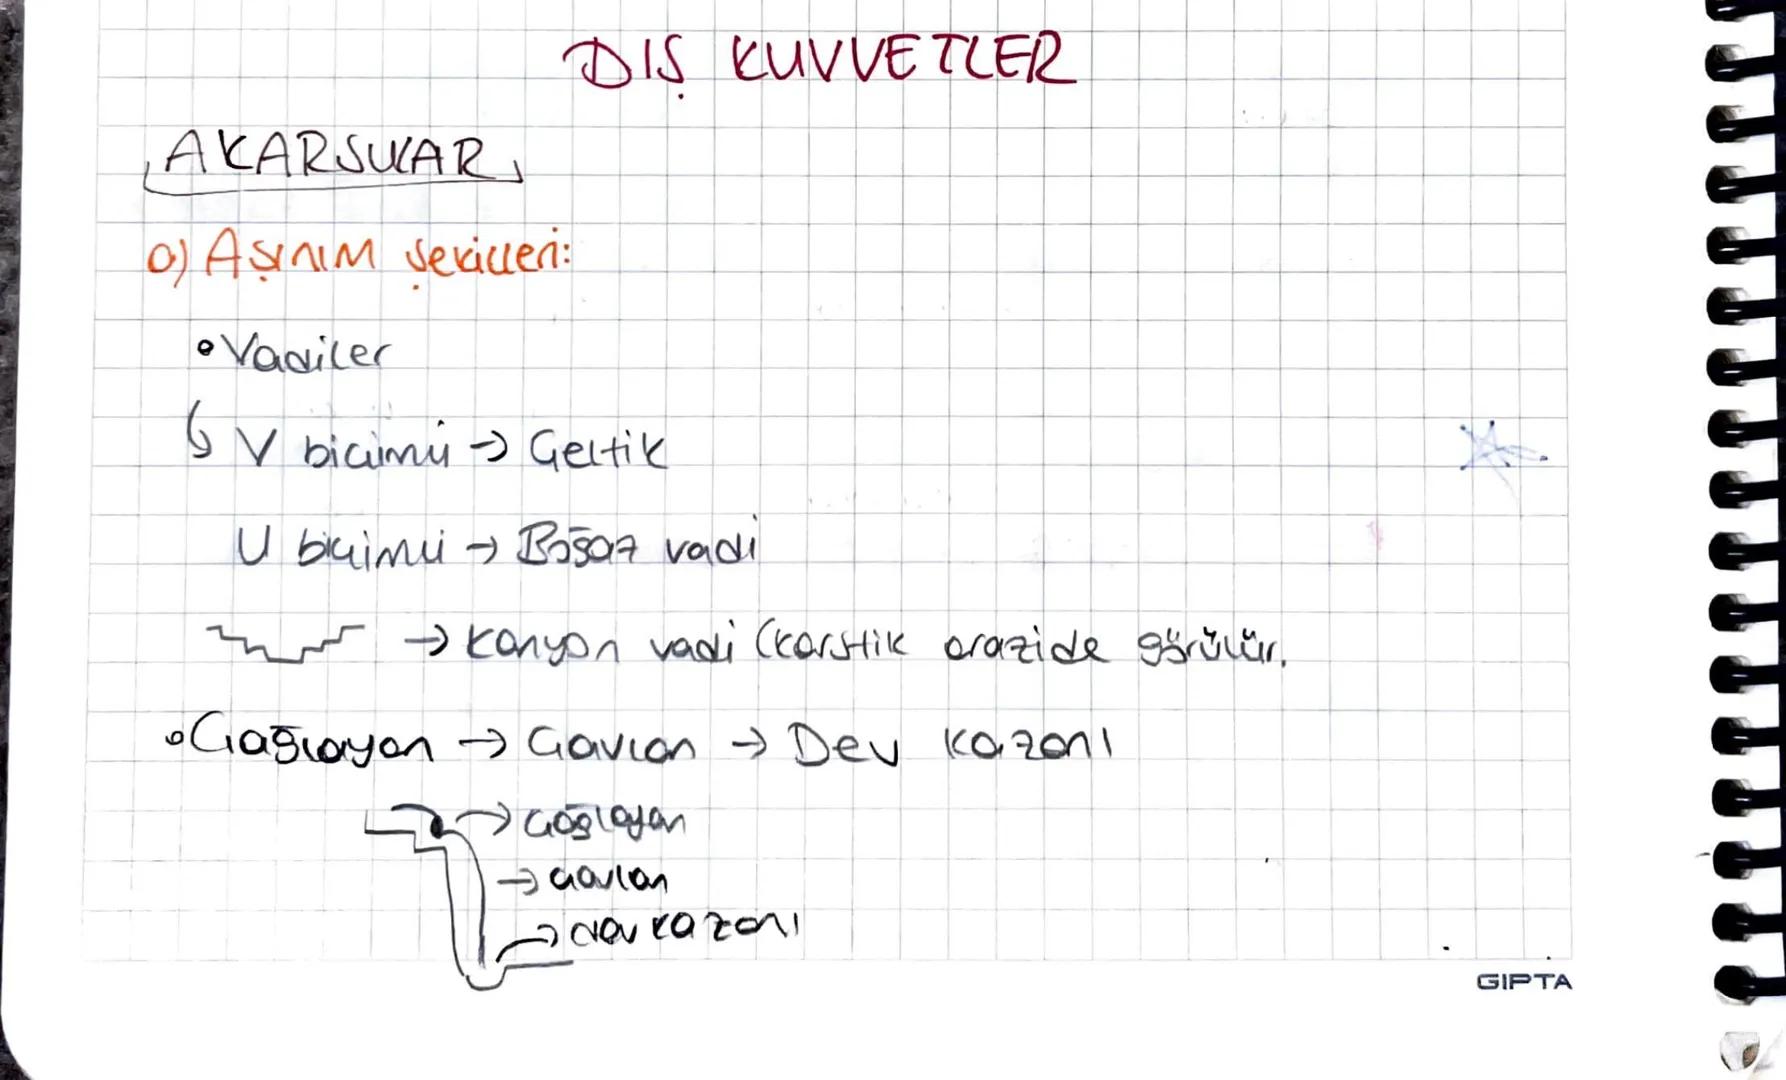 DIŞ KUVVETLER
AKARSULAR
a) Aşınım Şekilleri:
• Vadiler
V biçimli → Çentik
U biçimli → Boğaz vadi
→ Kanyon vadi (karstik arazide görülür.
• Çağlayan → Çavlan → Dev kazanı
→ Çağlayan
→ Çavlan
→ dev kazanı
GIPTA